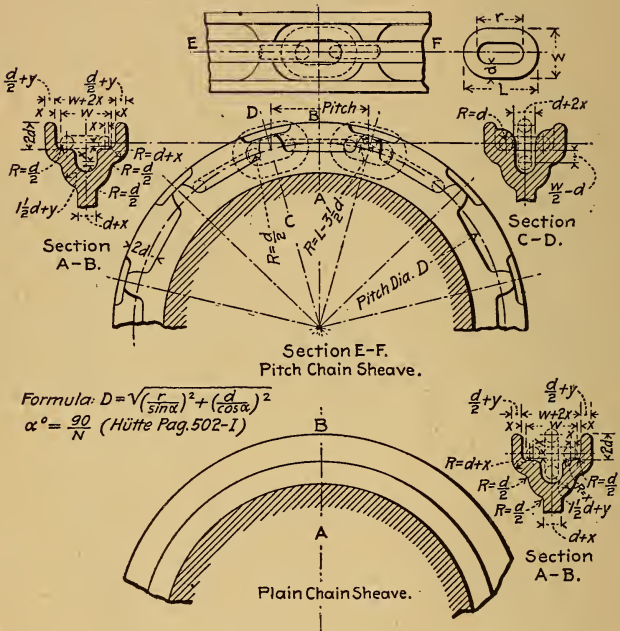 r
E
F
w
d
L
d/2+y
d/2+y
w+2x
x
w
x
x
2d
R=d+x
R=d/2
R=d/2
R=d/2
1½d+y
d+x
Section
A-B.
D
Pitch
B
A
C
R=d/2
R=L-3½d
2d
Pitch Dia. D
R=d
d+2x
w/2-d
Section
C-D.
Section E-F.
Pitch Chain Sheave.
Formula: D=√(r/sinα)²+(d/cosα)²
α°=90/N (Hütte Pag.502-I)
B
A
Plain Chain Sheave.
d/2+y
d/2+y
w+2x
x
w
x
x
2d
R=d+x
R=d/2
R=d/2
R=d/2
R=x
1½d+y
d+x
Section
A-B.